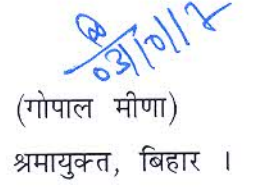 03/10/17
(गोपाल मीणा)
श्रमायुक्त, बिहार ।